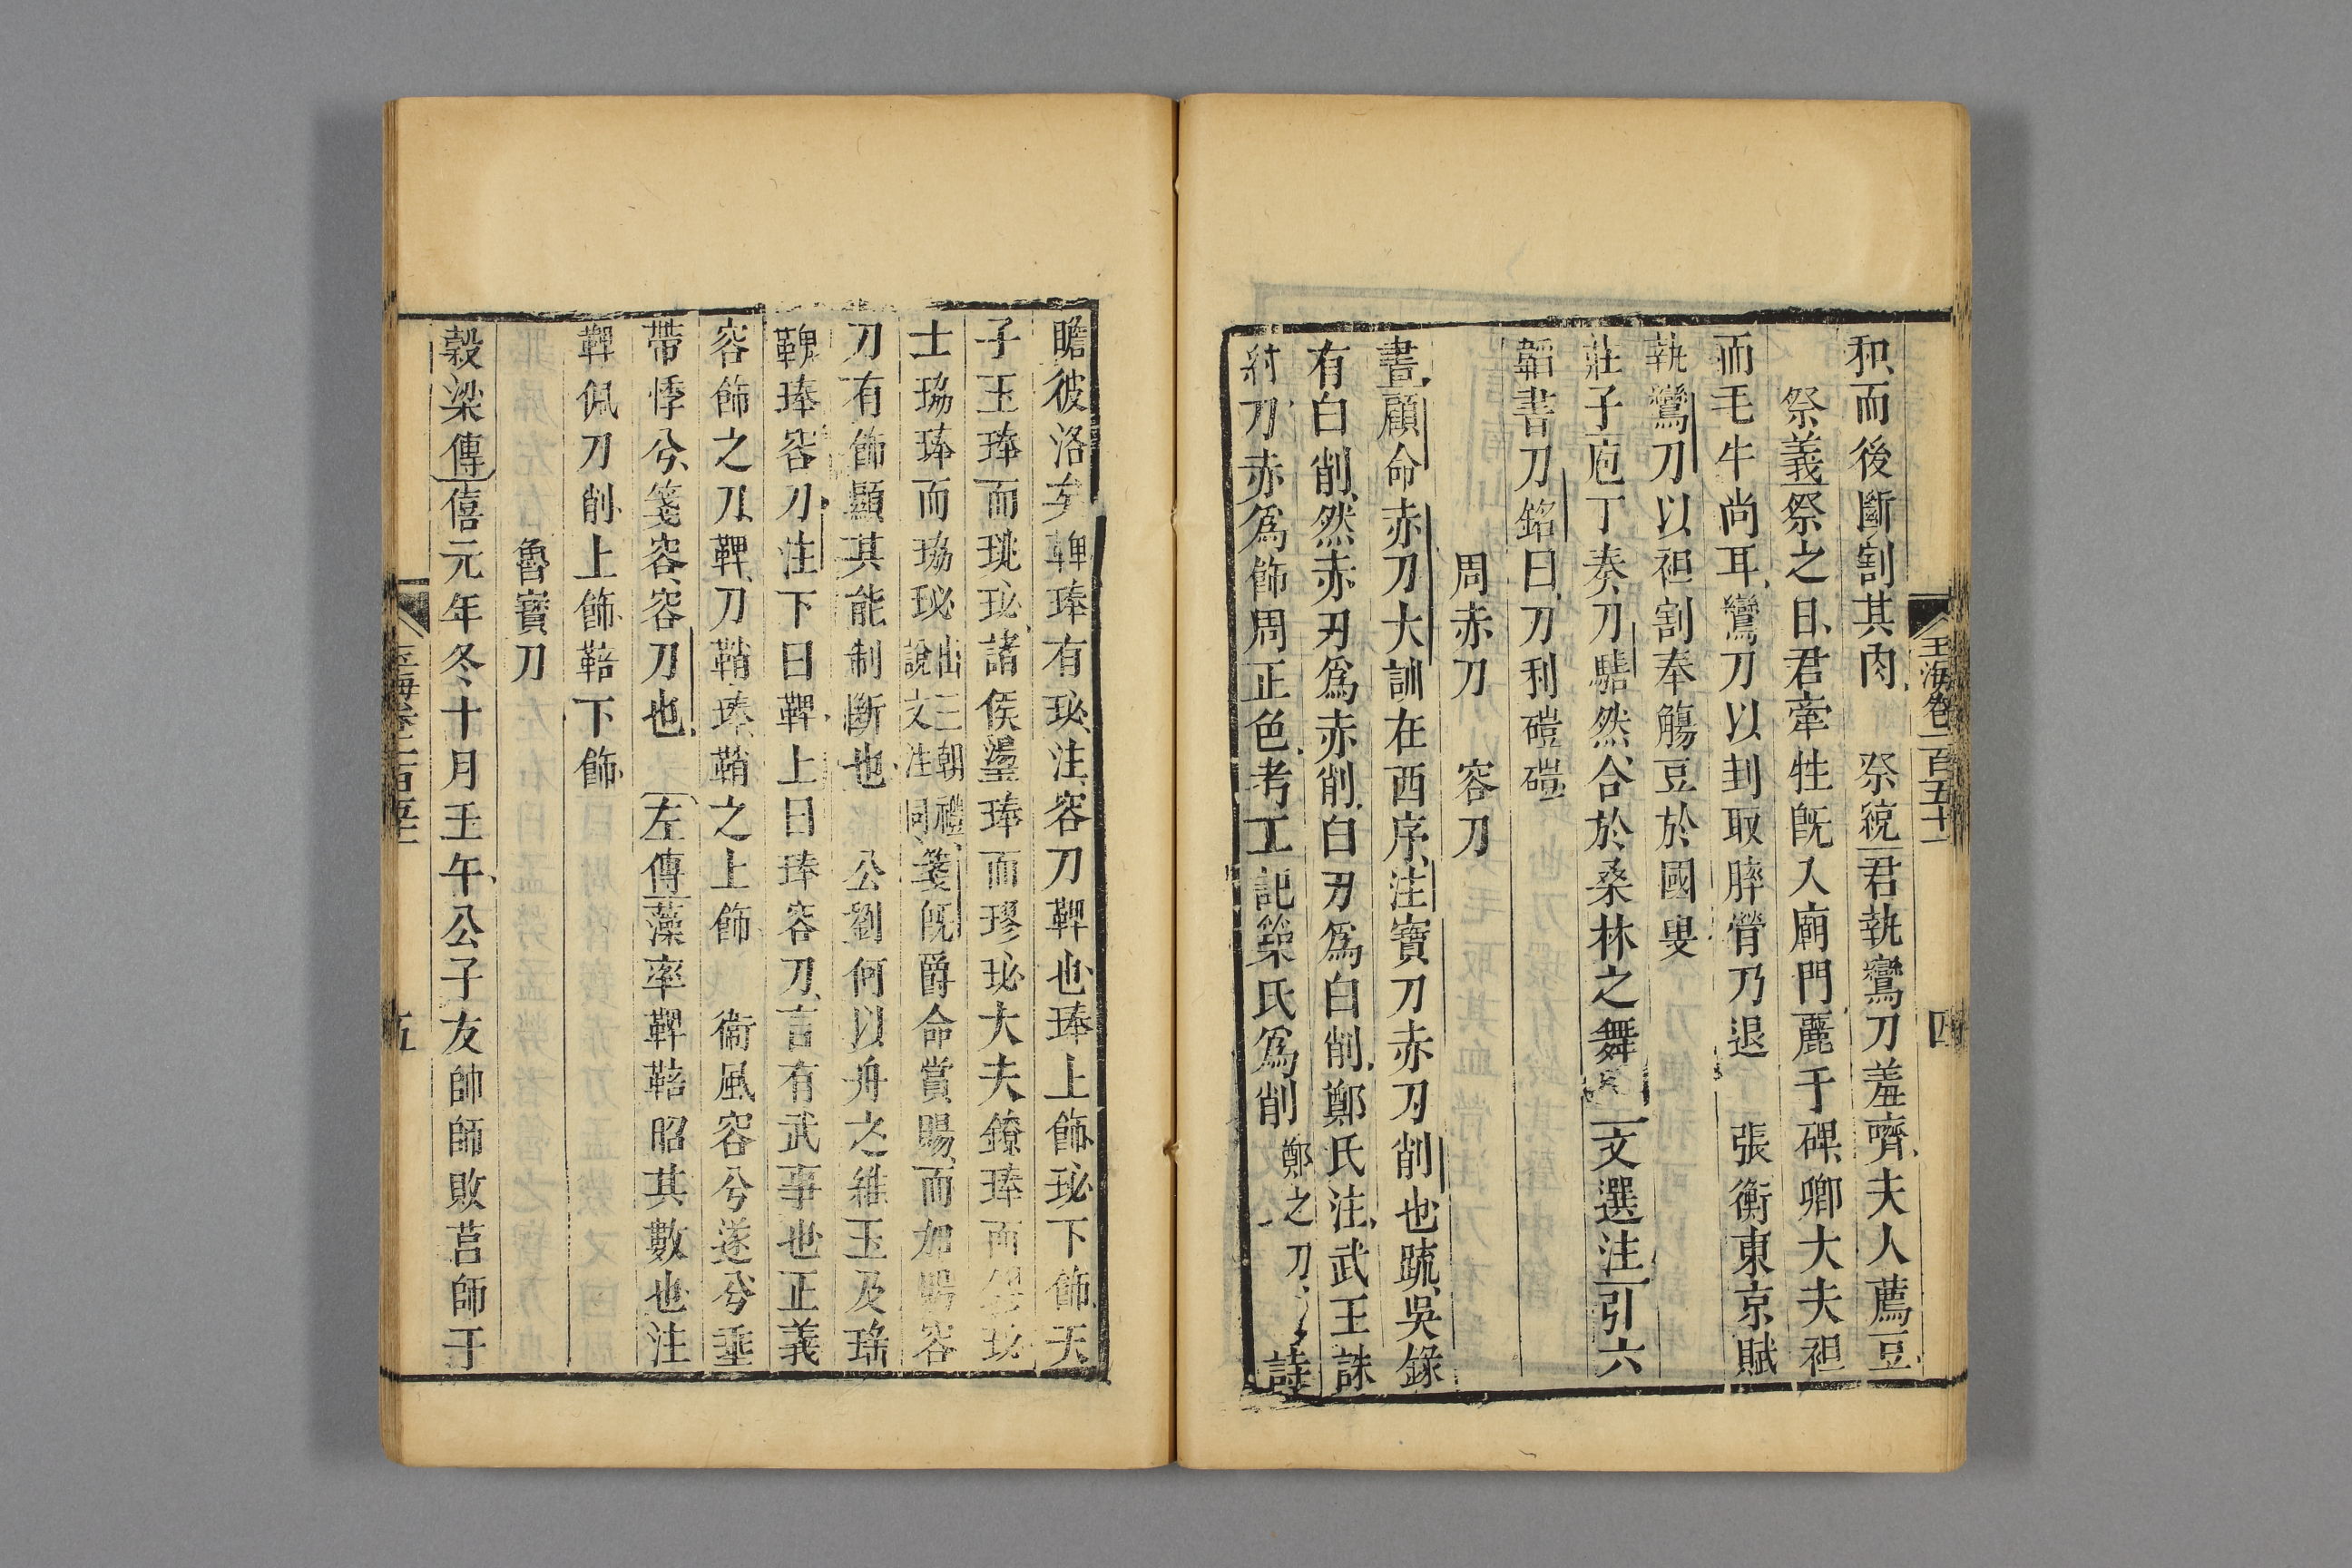 玉海卷一百五十一
四
和而後斷割其肉　祭統君執鸞刀羞嚌夫人薦豆
祭義祭之日君牽牲旣入廟門麗于碑卿大夫袒
而毛牛尚耳鸞刀以刲取膟膋乃退　張衡東京賦
執鸞刀以袒割奉觴豆於國叟
莊子庖丁奏刀騞然合於桑林之舞　文選注引六
韜書刀銘曰刀利磑磑
周赤刀　容刀
書顧命赤刀大訓在西序注寶刀赤刀削也䟽吳錄
有白削然赤刃爲赤削白刃爲白削鄭氏注武王誅
紂刀赤爲飾周正色考工記築氏爲削 鄭之刀　詩
瞻彼洛矣鞞琫有珌注容刀鞞也琫上飾珌下飾天
子玉琫而珧珌諸侯璗琫而璆珌大夫鐐琫而鏐珌
士珕琫而珕珌 出三朝禮說文注同 箋旣爵命賞賜而加賜容
刀有飾顯其能制斷也　公劉何以舟之維玉及瑤
鞞琫容刀注下曰鞞上曰琫容刀言有武事也正義
容飾之刀鞞刀鞘琫鞘之上飾　衞風容兮遂兮垂
帶悸兮箋容容刀也　左傳藻率鞞鞛昭其數也注
鞞佩刀削上飾鞛下飾
魯寶刀
穀梁傳僖元年冬十月壬午公子友帥師敗莒師于
五